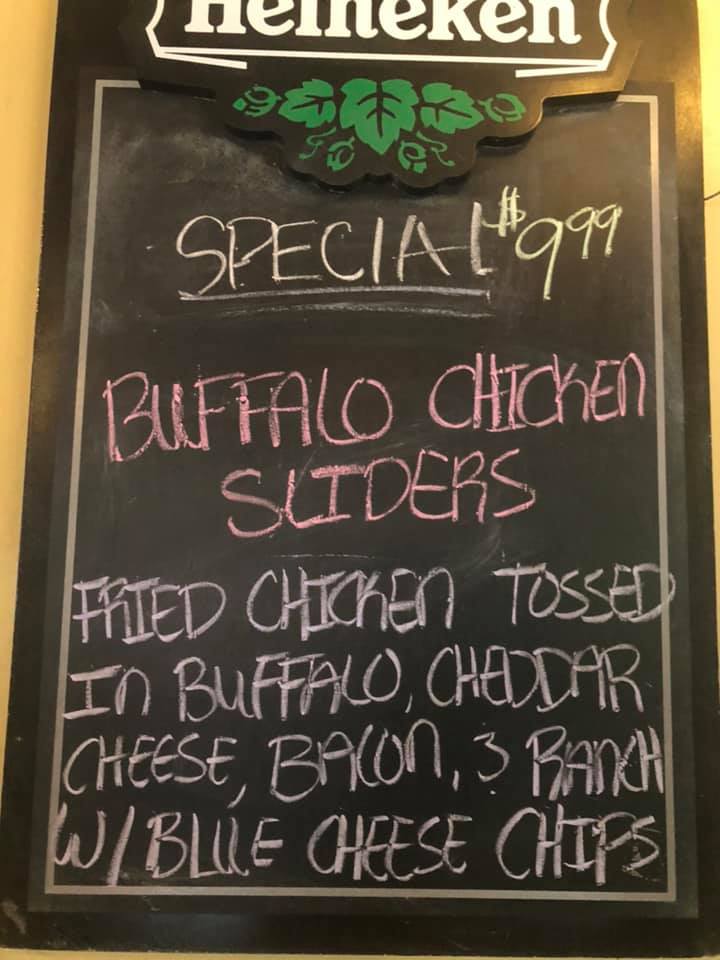 Heineken
SPECIAL $9.99
BUFFALO CHICKEN
SLIDERS
FRIED CHICKEN TOSSED
In BUFFALO, CHEDDAR
CHEESE, BACON, 3 RANCH
W/ BLUE CHEESE CHIPS